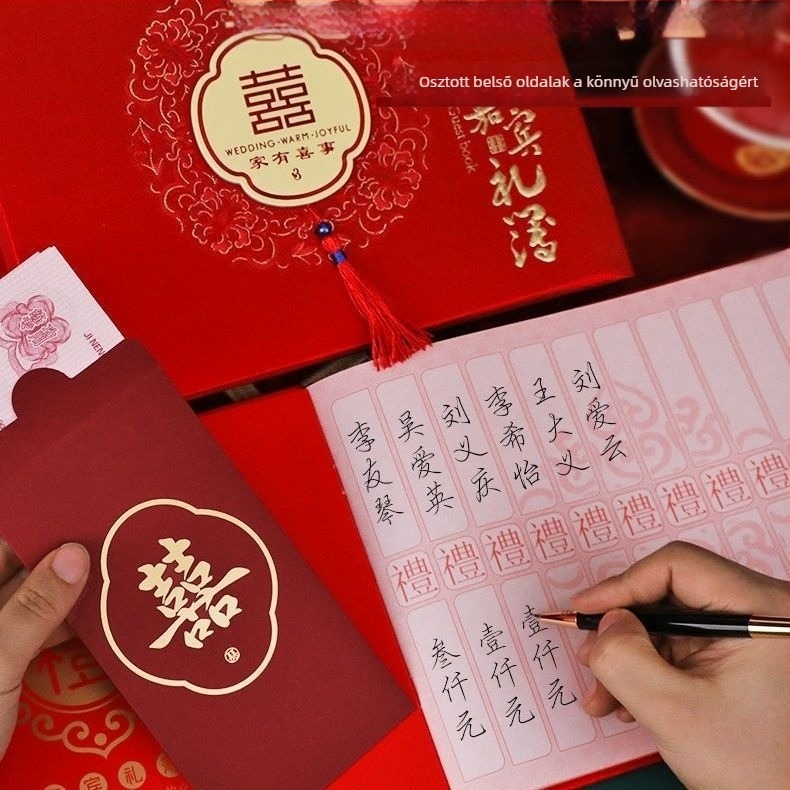 Osztott belső oldalak a könnyű olvashatóságért
囍
WEDDING·WARM·JOYFUL
家有喜事
礼簿
Guest book
JI NEN
囍
李友琴
吴爱英
刘义庆
李希怡
王大义
刘爱云
禮禮禮禮禮禮禮禮禮
叁仟元
壹仟元
壹仟元
宾礼